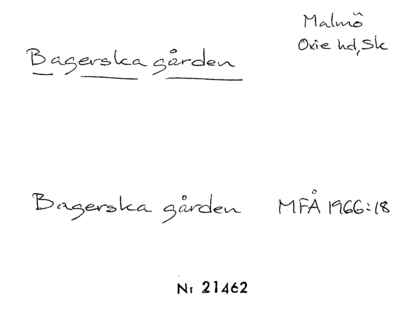 Malmö
Oxie hd, Sk
Bagerska gården
Bagerska gården MFÅ 1966:18
Nr 21462